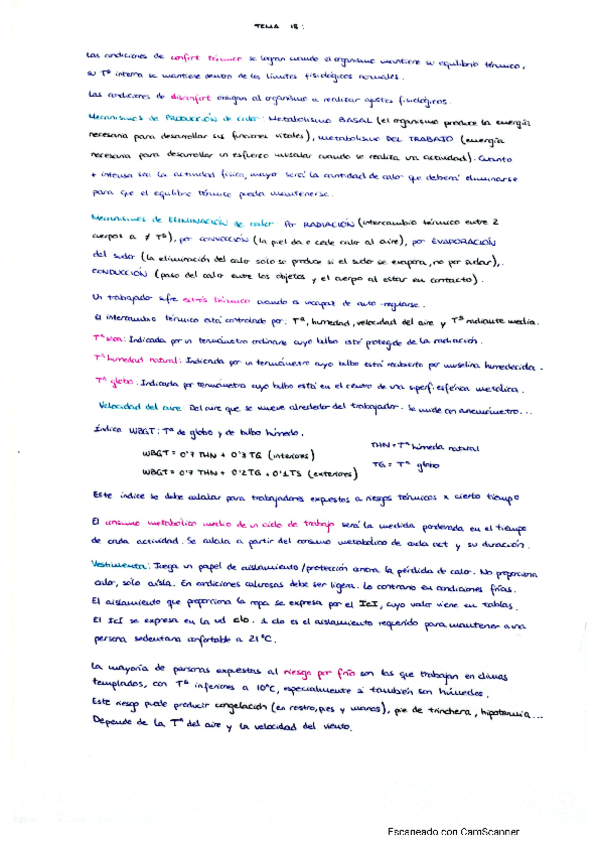 TEMA 18:
Las condiciones de confort térmico se logran cuando el organismo mantiene su equilibrio térmico,
su Tª interna se mantiene dentro de los límites fisiológicos normales.
Las condiciones de disconfort obligan al organismo a realizar ajustes fisiológicos.
Mecanismos de PRODUCCIÓN de calor: Metabolismo BASAL (el organismo produce la energía
necesaria para desarrollar sus funciones vitales), METABOLISMO DEL TRABAJO (energía
necesaria para desarrollar un esfuerzo muscular cuando se realiza una actividad). Cuanto
+ intensa sea la actividad física, mayor será la cantidad de calor que deberá eliminarse
para que el equilibrio térmico pueda mantenerse.
Mecanismos de ELIMINACIÓN de calor: Por RADIACIÓN (intercambio térmico entre 2
cuerpos a ≠ Tª), por CONVECCIÓN (la piel da o cede calor al aire), por EVAPORACIÓN
del sudor (la eliminación del calor solo se produce si el sudor se evapora, no por sudar),
CONDUCCIÓN (paso del calor entre los objetos y el cuerpo al estar en contacto).
Un trabajador sufre estrés térmico cuando es incapaz de auto-regularse.
El intercambio térmico está controlado por: Tª, humedad, velocidad del aire y Tª radiante media.
Tª seca: Indicada por un termómetro ordinario cuyo bulbo esté protegido de la radiación.
Tª humedad natural: Indicada por un termómetro cuyo bulbo está recubierto por muselina humedecida.
Tª globo: Indicada por termómetro cuyo bulbo está en el centro de una superf. esférica metálica.
Velocidad del aire: Del aire que se mueve alrededor del trabajador. Se mide con anemómetro...
Índice WBGT: Tª de globo y de bulbo húmedo.
WBGT = 0'7 THN + 0'3 TG (interiores)
WBGT = 0'7 THN + 0'2TG + 0'1TS (exteriores)
THN = Tª húmeda natural
TG = Tª globo
Este índice se debe calcular para trabajadores expuestos a riesgos térmicos x cierto tiempo
El consumo metabólico medio de un ciclo de trabajo será la medida ponderada en el tiempo
de cada actividad. Se calcula a partir del consumo metabólico de cada act y su duración.
Vestimenta: Juega un papel de aislamiento/protección contra la pérdida de calor. No proporciona
calor, solo aísla. En condiciones calurosas debe ser ligera. Lo contrario en condiciones frías.
El aislamiento que proporciona la ropa se expresa por el IcI, cuyo valor viene en tablas.
El IcI se expresa en la ud clo. 1 clo es el aislamiento requerido para mantener a una
persona sedentaria confortable a 21ºC.
La mayoría de personas expuestas al riesgo por frío son las que trabajan en climas
templados, con Tª inferiores a 10ºC, especialmente si también son húmedos.
Este riesgo puede producir congelación (en rostro, pies y manos), pie de trinchera, hipotermia...
Depende de la Tª del aire y la velocidad del viento.
Escaneado con CamScanner